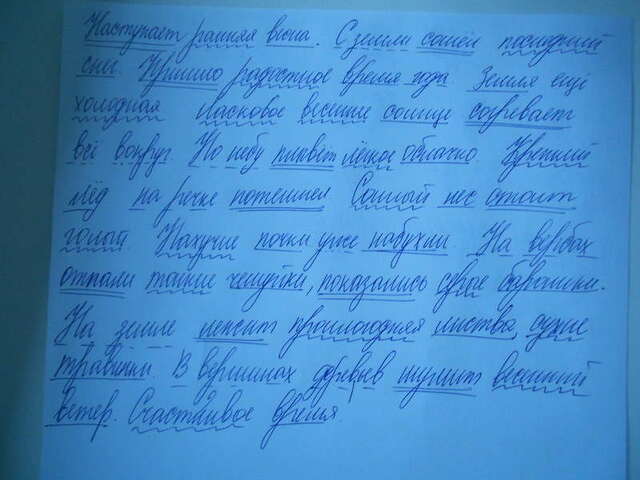 Наступает ранняя весна. С земли сошёл последний
снег. Пришло радостное время года. Земля ещё
холодная Ласковое весеннее солнце согревает
всё вокруг. По небу плывёт лёгкое облачко. Крепкий
лёд на речке потемнел Сонный лес стоит
голый. Пахучие почки уже набухли. На вербах
отпали тонкие чешуйки, показались серые барашки.
На земле лежит прошлогодняя листва, сухие
травинки. В вершинах деревьев шумит весенний
ветер. Счастливое время.